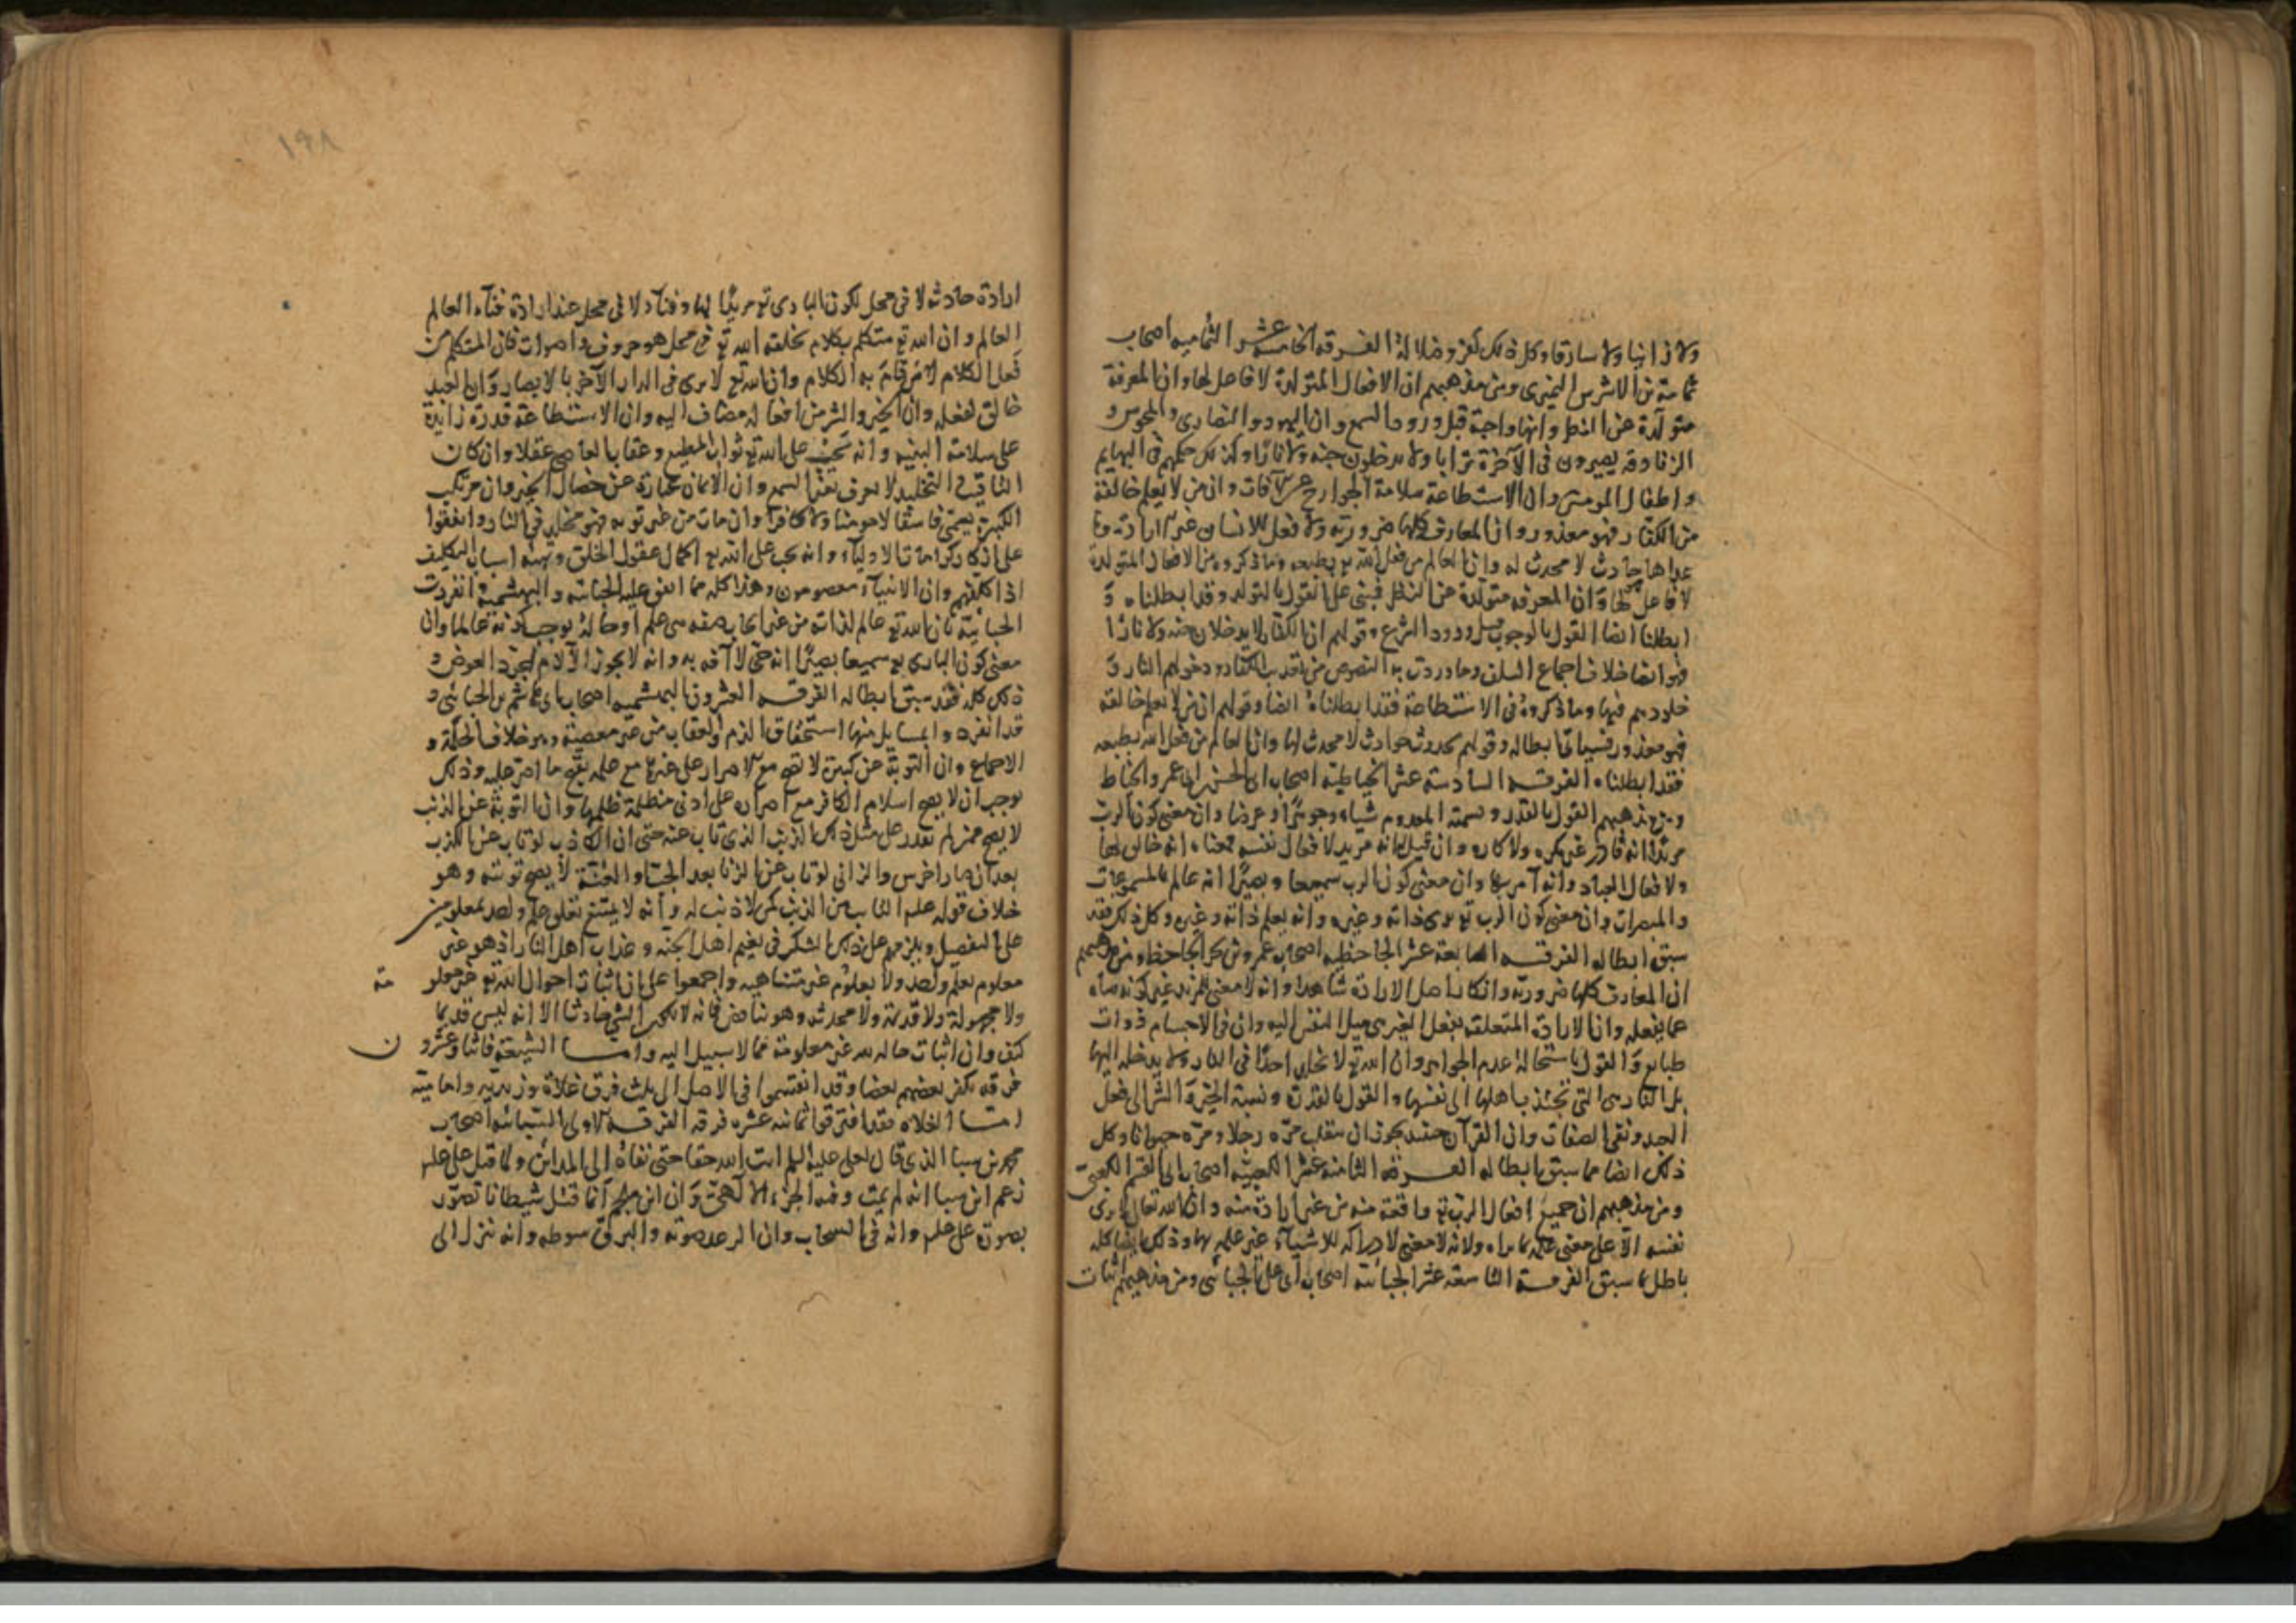 ولا زانيا ولا سارقا وكل ذلك كفر وضلالة الفرقه الخامسه عشر الثماميه اصحاب
ثمامة بن الاشرس النميرى ومن مذهبهم ان الافعال المتولدة لا فاعل لها وان المعرفة
متولدة عن النظر وانها واجبة قبل ورود السمع وان اليهود والنصارى والمجوس و
الزنادقه يصيرون فى الآخرة ترابا ولا يدخلون جنه ولا نارا وكذلك حكمهم فى البهايم
واطفال المومنين وان الاستطاعة سلامة الجوارح عن الآفات وان من لا يعلم خالقه
من الكفار فهو معذور وان المعارف كلها ضروريه ولا فعل للانسان غير الاراده وما
عداها حادث لا محدث له وان العالم من فعل الله تع بطبعه وما ذكروه من الافعال المتولدة
لا فاعل لها وان المعرفه متولدة عن النظر فبنى على القول بالتولد وقد ابطلناه و
ابطلنا ايضا القول بالوجوب قبل ورود الشرع وقولهم ان الكفار لا يدخلان جنه ولا نارا
فهو ايضا خلاف اجماع السلف وما وردت به النصوص من الكفار ودخولهم النار و
خلودهم فيها وما ذكروه فى الاستطاعة فقد ابطلناه ايضا وقولهم ان من لا يعلم خالقه
فهو معذور فسياتى ابطاله وقولهم بحدوث حوادث لا محدث لها وان العالم من فعل الله بطبعه
فقد ابطلناه الفرقه السادسة عشر الخياطية اصحاب ابى الحسين ابى عمرو الخياط
ومن مذهبهم القول بالقدر وتسمية المعدوم شياء وجوهرا وعرضا وان معنى كون الرب
مريدا انه قادر غير مكره ولا كاره وان قيل انه مريد لافعال نفسه فمعناه انه خالق لها
ولافعال العباد وانه آمر بها وان معنى كون الرب سميعا وبصيرا انه عالم بالمسموعات
والمبصرات وان معنى كون الرب تع يرى ذاته وغيره وانه يعلم ذاته وغيره وكل ذلك فقد
سبق ابطاله الفرقه السابعة عشر الجاحظيه اصحاب عمرو بن بحر الجاحظ ومن مذهبهم
ان المعارف كلها ضروريه وانكار اصل الارادة شاهدا وانه لا معنى للمريد غير كونه ساه
عما يفعله وان الارادة المتعلقه بفعل الغير هى ميل النفس اليه وان فى الاجسام ذوات
طبايع والقول باستحالة عدم الجواهر وان الله تع لا يخلد احدا فى النار ولا يدخله اليها
بل النار هى التى تجتذب اهلها الى نفسها والقول بالقدر ونسبة الخير والشر الى فعل
العبد ونفى الصفات وان القرآن جسد يجوز ان ينقلب مره رجلا ومره حيوانا وكل
ذلك ايضا مما سبق ابطاله الفرقه الثامنه عشر الكعبية اصحاب ابى القسم الكعبى
ومن مذهبهم ان جميع افعال الرب تع واقعة منه من غير ارادة منه وان الله تعالى لا يرى
نفسه الا على معنى علمه بما يراه ولانه لا معنى لادراكه للاشياء غير علمه بها وذلك ايضا كله
باطل بما سبق الفرقة التاسعه عشر الجبائية اصحاب ابى على الجبائى ومن مذهبهم اثبات
ارادة حادثه لا فى محل لكون البارى تع مريدا لها وفناء لا فى محل عند ارادة فناء العالم
العالم وان الله تع متكلم بكلام يخلقه الله تع فى محل هو حروف واصوات فان المتكلم من
فعل الكلام لا من قام به الكلام وان الله تع لا يرى فى الدار الآخره بالابصار وان العبد
خالق لفعله وان الخير والشر من افعاله مضاف اليه وان الاستطاعة قدرة زايدة
على سلامة البنيه وانه يجب على الله تع ثواب المطيع وعقاب العاصى عقلا وان كان
التاقيت والتخليد لا يعرف بغير السمع وان الايمان عبارة عن خصال الخير وان مرتكب
الكبيرة يسمى فاسقا لا مومنا ولا كافرا وان مات من غير توبه فهو مخلد فى النار واتفقوا
على انكار كرامات الاولياء وانه يجب على الله تع اكمال عقول الخلق وتهيئة اسباب التكليف
اذا كلفهم وان الانبياء معصومون وهذا كله مما اتفق عليه الجبائيه والبهشمية وانفردت
الجبائية بان الله تع عالم لذاته من غير ايجاب صفه هى علم او حالة يوجب كونه عالما وان
معنى كون البارى تع سميعا بصيرا انه حى لا آفه به وانه لا يجوز الآلام لمجرد العوض و
ذلك كله فقد سبق ابطاله الفرقه العشرون البهشميه اصحاب ابى هاشم بن الجبائى و
قد انفردوا بمسايل منها استحقاق الذم والعقاب من غير معصية وهو خلاف الحكمة و
الاجماع وان التوبة عن كبيرة لا تصح مع الاصرار على غيرها مع علمه بقبح ما اصر عليه وذلك
يوجب ان لا يصح اسلام الكافر مع اصراره على ادنى مظلمة ظلمها وان التوبة عن الذنب
لا يصح ممن لم يقدر على مثل ذلك الذنب الذى تاب عنه حتى ان الكاذب لو تاب عن الكذب
بعد ان صار اخرس والزانى لو تاب عن الزنا بعد الجب والعنة لا يصح توبته وهو
خلاف قوله عليه السلام التايب من الذنب كمن لا ذنب له وانه لا يمتنع تعلق علم واحد بمعلومين
على التفصيل ويلزمهم على ذلك الشك فى نعيم اهل الجنه وعذاب اهل النار اذ هو غير
معلوم بعلم واحد ولا بعلوم غير متناهيه واجمعوا على ان اثبات احوال الله تع غير معلومة
ولا مجهولة ولا قديمة ولا محدثه وهو تناقض فانه لا يكون الشى حادثا الا انه ليس قديما
كيف وان اثبات حاله لله غير معلومة مما لا سبيل اليه واما الشيعة فاثنا وعشرون
فرقه يكفر بعضهم بعضا وقد انقسموا فى الاصل الى ثلث فرق غلاة وزيديه واماميه
اما الغلاه فقد افترقوا ثمانيه عشره فرقه الفرقه الاولى السبائيه اصحاب
بن سبا الذى قال لعلى عليه السلم انت الله حقا حتى نفاه الى المداين ولما قتل على علم
زعم ابن سبا انه لم يمت وفيه الجزء الآلهى وان ابن ملجم انما قتل شيطانا تصور
بصورة على علم وانه فى السحاب وان الرعد صوته والبرق سوطه وانه ينزل الى